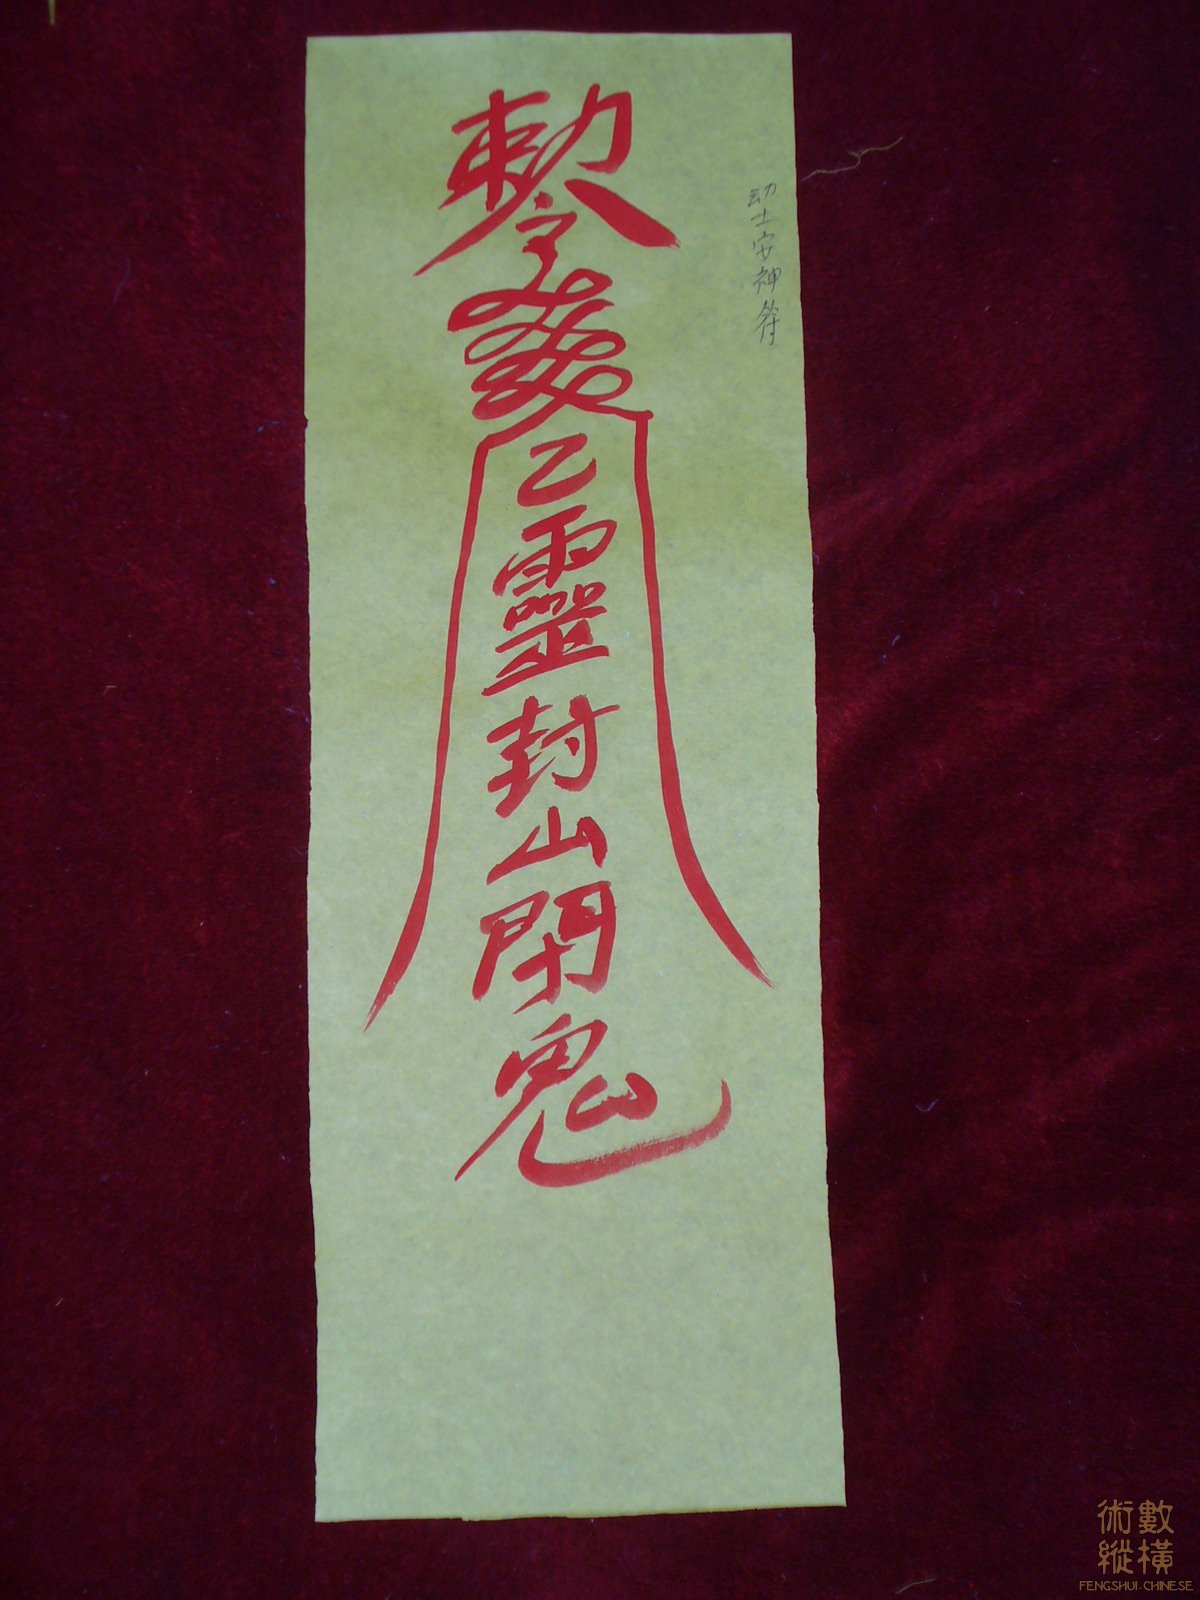 敕令
乙靈封山閉鬼
动土安神符
術數
縱橫
FENGSHUI-CHINESE